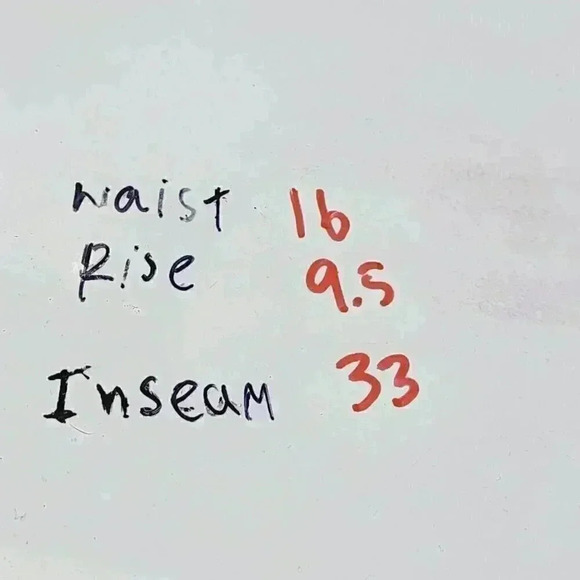 Waist 16
Rise 9.5
Inseam 33